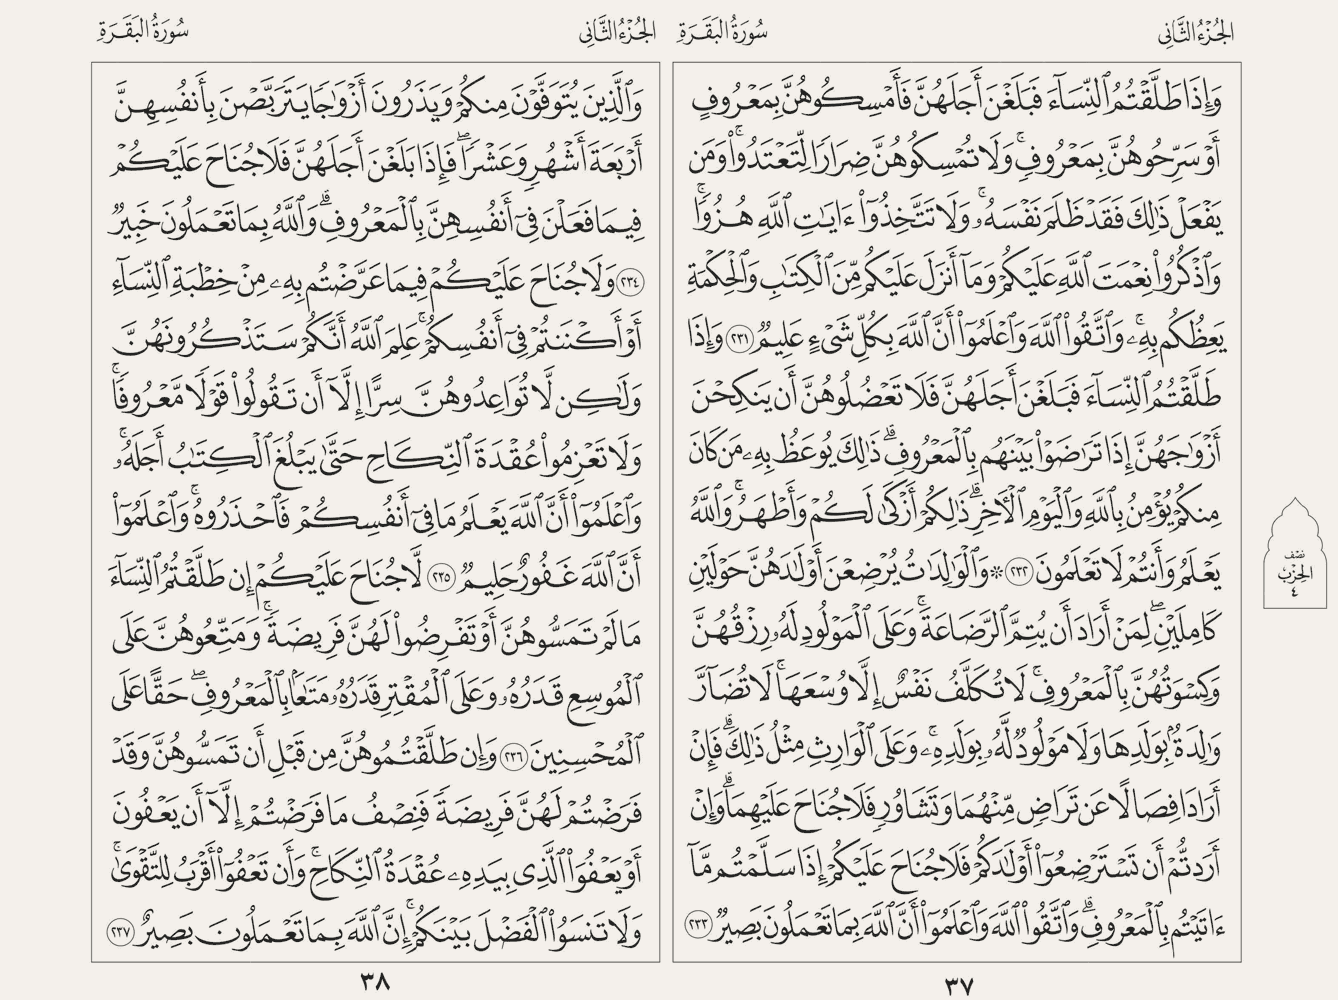 الجُزْءُ الثَّانِي
سُورَةُ البَقَرَةِ
وَإِذَا طَلَّقْتُمُ ٱلنِّسَآءَ فَبَلَغْنَ أَجَلَهُنَّ فَأَمْسِكُوهُنَّ بِمَعْرُوفٍ
أَوْ سَرِّحُوهُنَّ بِمَعْرُوفٍۚ وَلَا تُمْسِكُوهُنَّ ضِرَارًا لِّتَعْتَدُوا۟ۚ وَمَن
يَفْعَلْ ذَٰلِكَ فَقَدْ ظَلَمَ نَفْسَهُۥۚ وَلَا تَتَّخِذُوٓا۟ ءَايَـٰتِ ٱللَّهِ هُزُوًاۚ
وَٱذْكُرُوا۟ نِعْمَتَ ٱللَّهِ عَلَيْكُمْ وَمَآ أَنزَلَ عَلَيْكُم مِّنَ ٱلْكِتَـٰبِ وَٱلْحِكْمَةِ
يَعِظُكُم بِهِۦۚ وَٱتَّقُوا۟ ٱللَّهَ وَٱعْلَمُوٓا۟ أَنَّ ٱللَّهَ بِكُلِّ شَىْءٍ عَلِيمٌ ٢٣١ وَإِذَا
طَلَّقْتُمُ ٱلنِّسَآءَ فَبَلَغْنَ أَجَلَهُنَّ فَلَا تَعْضُلُوهُنَّ أَن يَنكِحْنَ
أَزْوَٰجَهُنَّ إِذَا تَرَٰضَوْا۟ بَيْنَهُم بِٱلْمَعْرُوفِۗ ذَٰلِكَ يُوعَظُ بِهِۦ مَن كَانَ
مِنكُمْ يُؤْمِنُ بِٱللَّهِ وَٱلْيَوْمِ ٱلْـَٔاخِرِۗ ذَٰلِكُمْ أَزْكَىٰ لَكُمْ وَأَطْهَرُۚ وَٱللَّهُ
يَعْلَمُ وَأَنتُمْ لَا تَعْلَمُونَ ٢٣٢ ❊ وَٱلْوَٰلِدَٰتُ يُرْضِعْنَ أَوْلَـٰدَهُنَّ حَوْلَيْنِ
كَامِلَيْنِۖ لِمَنْ أَرَادَ أَن يُتِمَّ ٱلرَّضَاعَةَۚ وَعَلَى ٱلْمَوْلُودِ لَهُۥ رِزْقُهُنَّ
وَكِسْوَتُهُنَّ بِٱلْمَعْرُوفِۚ لَا تُكَلَّفُ نَفْسٌ إِلَّا وُسْعَهَاۚ لَا تُضَآرَّ
وَٰلِدَةٌۢ بِوَلَدِهَا وَلَا مَوْلُودٌ لَّهُۥ بِوَلَدِهِۦۚ وَعَلَى ٱلْوَارِثِ مِثْلُ ذَٰلِكَۗ فَإِنْ
أَرَادَا فِصَالًا عَن تَرَاضٍ مِّنْهُمَا وَتَشَاوُرٍ فَلَا جُنَاحَ عَلَيْهِمَاۗ وَإِنْ
أَرَدتُّمْ أَن تَسْتَرْضِعُوٓا۟ أَوْلَـٰدَكُمْ فَلَا جُنَاحَ عَلَيْكُمْ إِذَا سَلَّمْتُم مَّآ
ءَاتَيْتُم بِٱلْمَعْرُوفِۗ وَٱتَّقُوا۟ ٱللَّهَ وَٱعْلَمُوٓا۟ أَنَّ ٱللَّهَ بِمَا تَعْمَلُونَ بَصِيرٌ ٢٣٣
٣٧
نِصْف
الحِزْبُ
٤
الجُزْءُ الثَّانِي
سُورَةُ البَقَرَةِ
وَٱلَّذِينَ يُتَوَفَّوْنَ مِنكُمْ وَيَذَرُونَ أَزْوَٰجًا يَتَرَبَّصْنَ بِأَنفُسِهِنَّ
أَرْبَعَةَ أَشْهُرٍ وَعَشْرًاۖ فَإِذَا بَلَغْنَ أَجَلَهُنَّ فَلَا جُنَاحَ عَلَيْكُمْ
فِيمَا فَعَلْنَ فِىٓ أَنفُسِهِنَّ بِٱلْمَعْرُوفِۗ وَٱللَّهُ بِمَا تَعْمَلُونَ خَبِيرٌ
٢٣٤ وَلَا جُنَاحَ عَلَيْكُمْ فِيمَا عَرَّضْتُم بِهِۦ مِنْ خِطْبَةِ ٱلنِّسَآءِ
أَوْ أَكْنَنتُمْ فِىٓ أَنفُسِكُمْۚ عَلِمَ ٱللَّهُ أَنَّكُمْ سَتَذْكُرُونَهُنَّ
وَلَـٰكِن لَّا تُوَاعِدُوهُنَّ سِرًّا إِلَّآ أَن تَقُولُوا۟ قَوْلًا مَّعْرُوفًاۚ
وَلَا تَعْزِمُوا۟ عُقْدَةَ ٱلنِّكَاحِ حَتَّىٰ يَبْلُغَ ٱلْكِتَـٰبُ أَجَلَهُۥۚ
وَٱعْلَمُوٓا۟ أَنَّ ٱللَّهَ يَعْلَمُ مَا فِىٓ أَنفُسِكُمْ فَٱحْذَرُوهُۚ وَٱعْلَمُوٓا۟
أَنَّ ٱللَّهَ غَفُورٌ حَلِيمٌ ٢٣٥ لَّا جُنَاحَ عَلَيْكُمْ إِن طَلَّقْتُمُ ٱلنِّسَآءَ
مَا لَمْ تَمَسُّوهُنَّ أَوْ تَفْرِضُوا۟ لَهُنَّ فَرِيضَةًۚ وَمَتِّعُوهُنَّ عَلَى
ٱلْمُوسِعِ قَدَرُهُۥ وَعَلَى ٱلْمُقْتِرِ قَدَرُهُۥ مَتَـٰعًۢا بِٱلْمَعْرُوفِۖ حَقًّا عَلَى
ٱلْمُحْسِنِينَ ٢٣٦ وَإِن طَلَّقْتُمُوهُنَّ مِن قَبْلِ أَن تَمَسُّوهُنَّ وَقَدْ
فَرَضْتُمْ لَهُنَّ فَرِيضَةً فَنِصْفُ مَا فَرَضْتُمْ إِلَّآ أَن يَعْفُونَ
أَوْ يَعْفُوَا۟ ٱلَّذِى بِيَدِهِۦ عُقْدَةُ ٱلنِّكَاحِۚ وَأَن تَعْفُوٓا۟ أَقْرَبُ لِلتَّقْوَىٰۚ
وَلَا تَنسَوُا۟ ٱلْفَضْلَ بَيْنَكُمْۚ إِنَّ ٱللَّهَ بِمَا تَعْمَلُونَ بَصِيرٌ ٢٣٧
٣٨